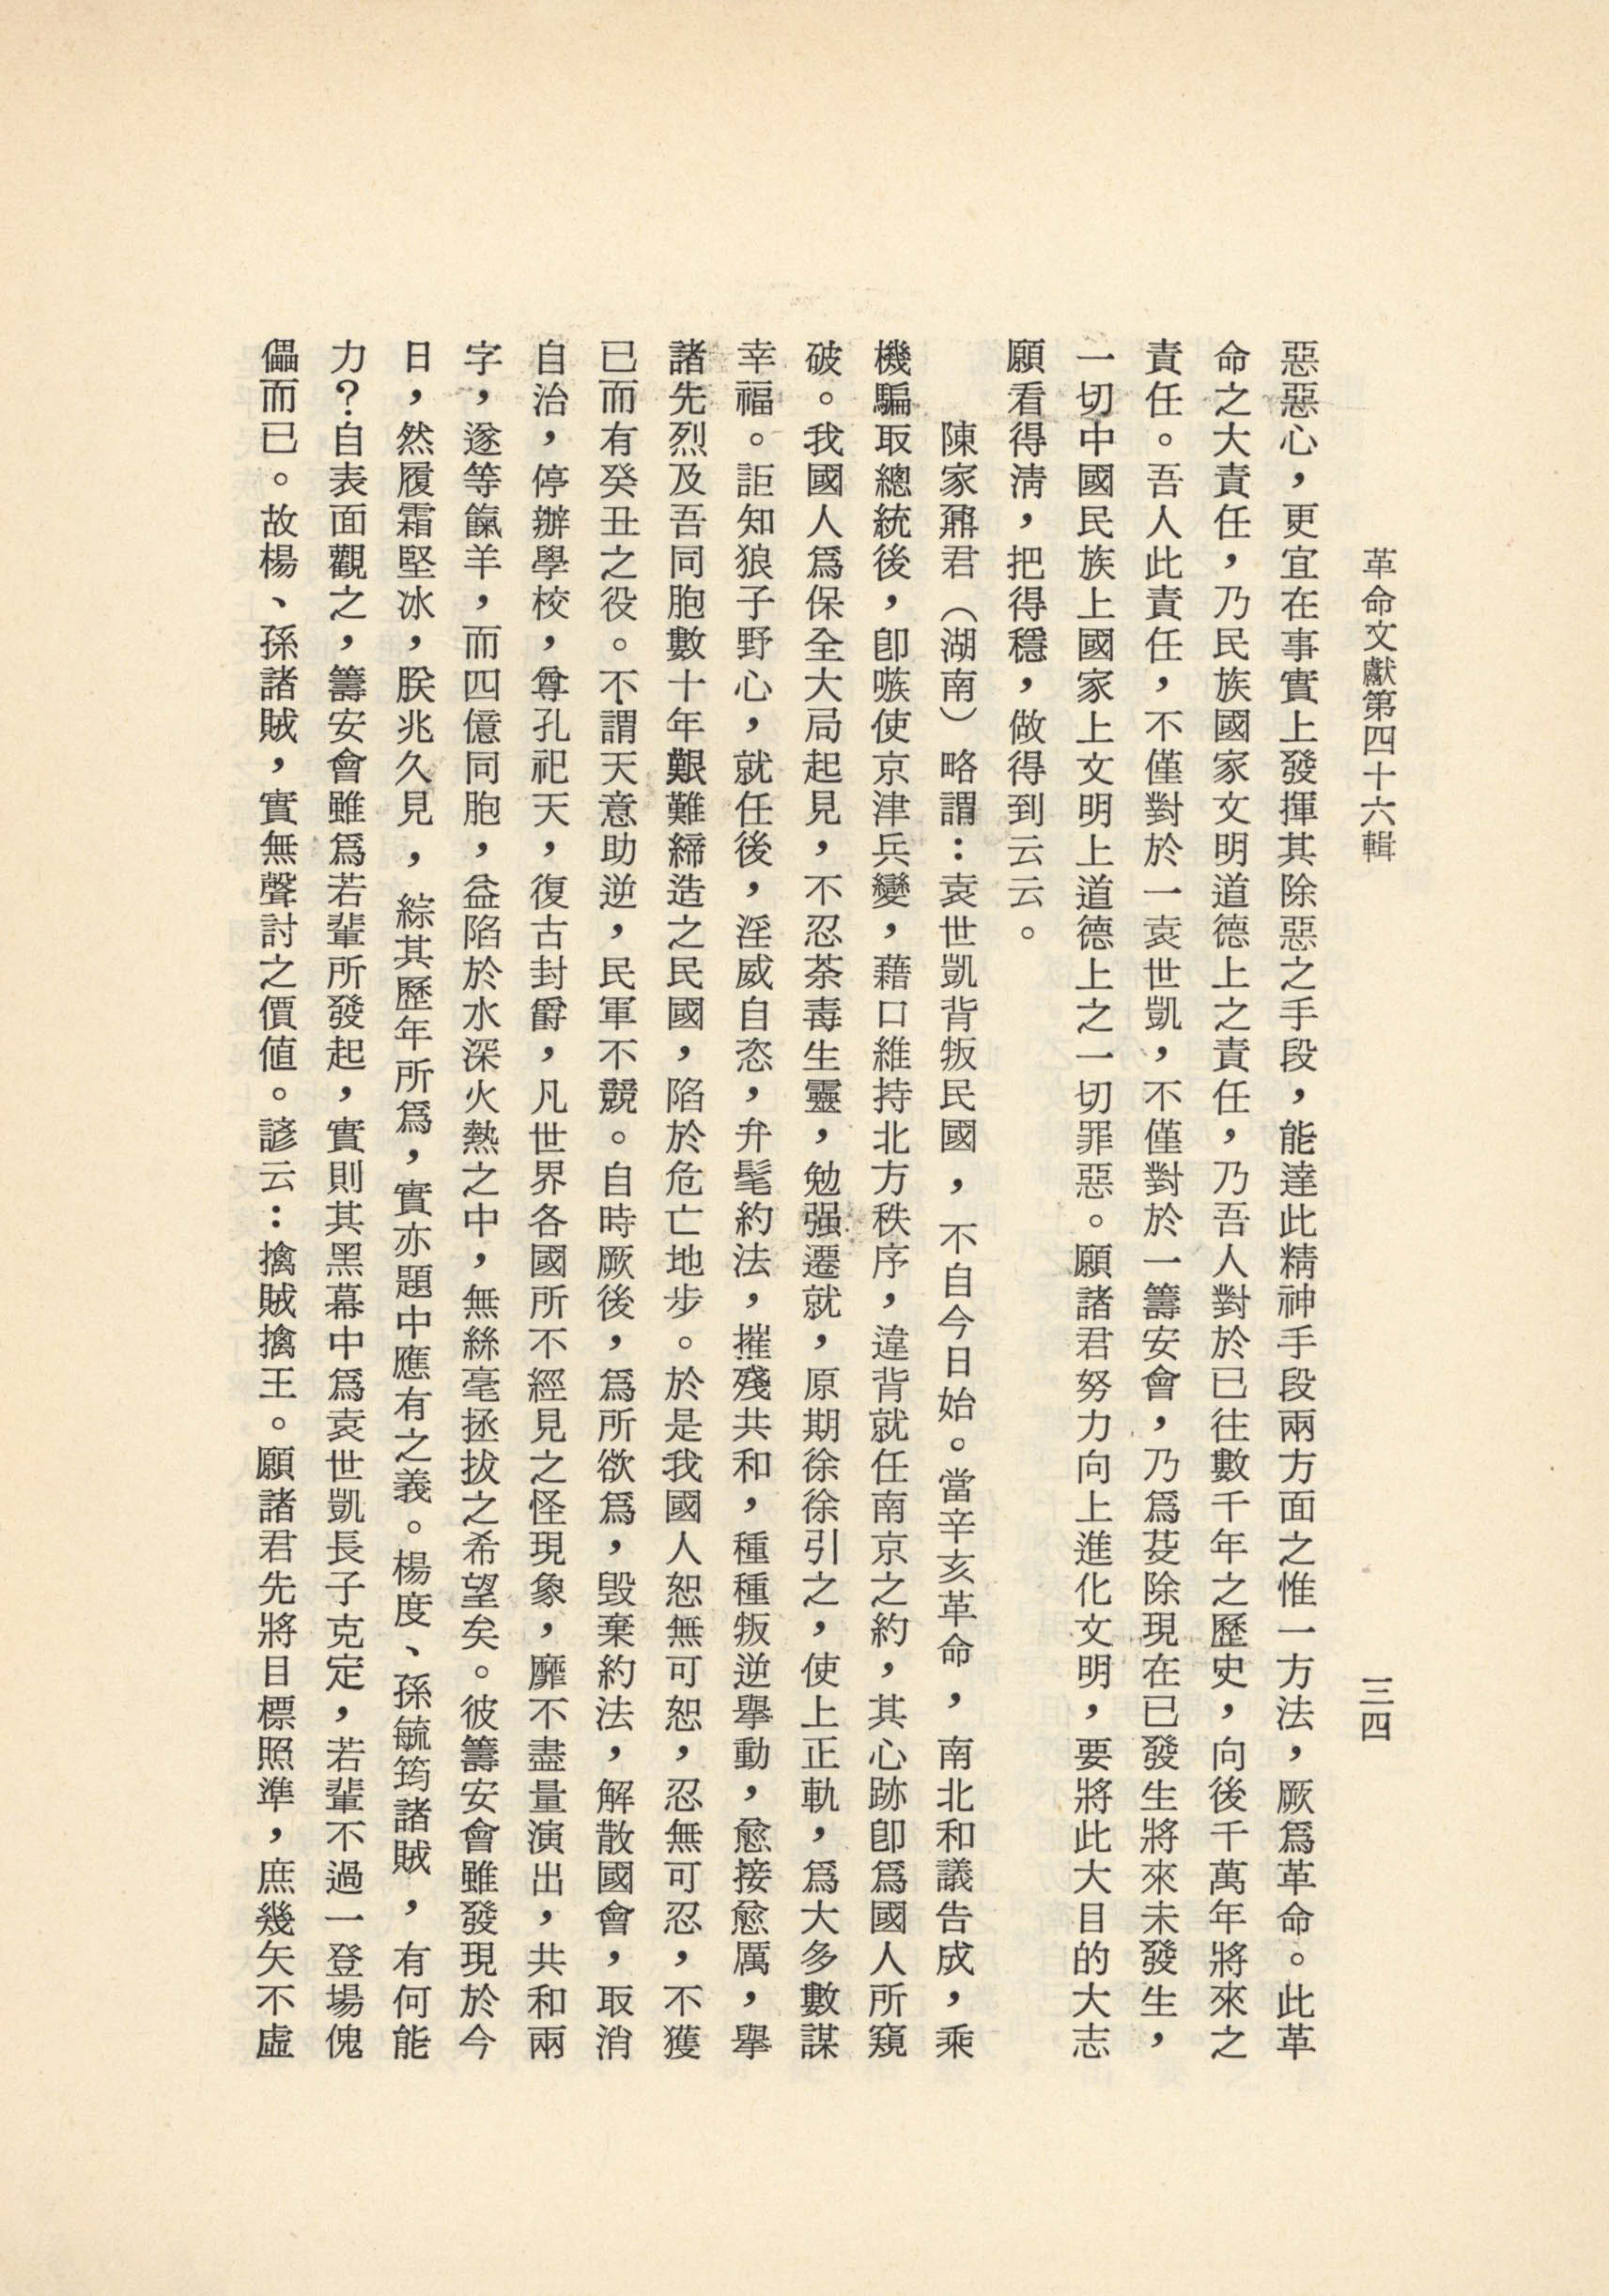 革命文獻第四十六輯
三四
惡惡心，更宜在事實上發揮其除惡之手段，能達此精神手段兩方面之惟一方法，厥爲革命。此革
命之大責任，乃民族國家文明道德上之責任，乃吾人對於已往數千年之歷史，向後千萬年將來之
責任。吾人此責任，不僅對於一袁世凱，不僅對於一籌安會，乃爲芟除現在已發生將來未發生，
一切中國民族上國家上文明上道德上之一切罪惡。願諸君努力向上進化文明，要將此大目的大志
願看得淸，把得穩，做得到云云。
陳家鼐君（湖南）略謂：袁世凱背叛民國，不自今日始。當辛亥革命，南北和議告成，乘
機騙取總統後，卽嗾使京津兵變，藉口維持北方秩序，違背就任南京之約，其心跡卽爲國人所窺
破。我國人爲保全大局起見，不忍荼毒生靈，勉强遷就，原期徐徐引之，使上正軌，爲大多數謀
幸福。詎知狼子野心，就任後，淫威自恣，弁髦約法，摧殘共和，種種叛逆擧動，愈接愈厲，擧
諸先烈及吾同胞數十年艱難締造之民國，陷於危亡地步。於是我國人恕無可恕，忍無可忍，不獲
已而有癸丑之役。不謂天意助逆，民軍不競。自時厥後，爲所欲爲，毀棄約法，解散國會，取消
自治，停辦學校，尊孔祀天，復古封爵，凡世界各國所不經見之怪現象，靡不盡量演出，共和兩
字，遂等餼羊，而四億同胞，益陷於水深火熱之中，無絲毫拯拔之希望矣。彼籌安會雖發現於今
日，然履霜堅冰，朕兆久見，綜其歷年所爲，實亦題中應有之義。楊度、孫毓筠諸賊，有何能
力？自表面觀之，籌安會雖爲若輩所發起，實則其黑幕中爲袁世凱長子克定，若輩不過一登場傀
儡而已。故楊、孫諸賊，實無聲討之價値。諺云：擒賊擒王。願諸君先將目標照準，庶幾矢不虛